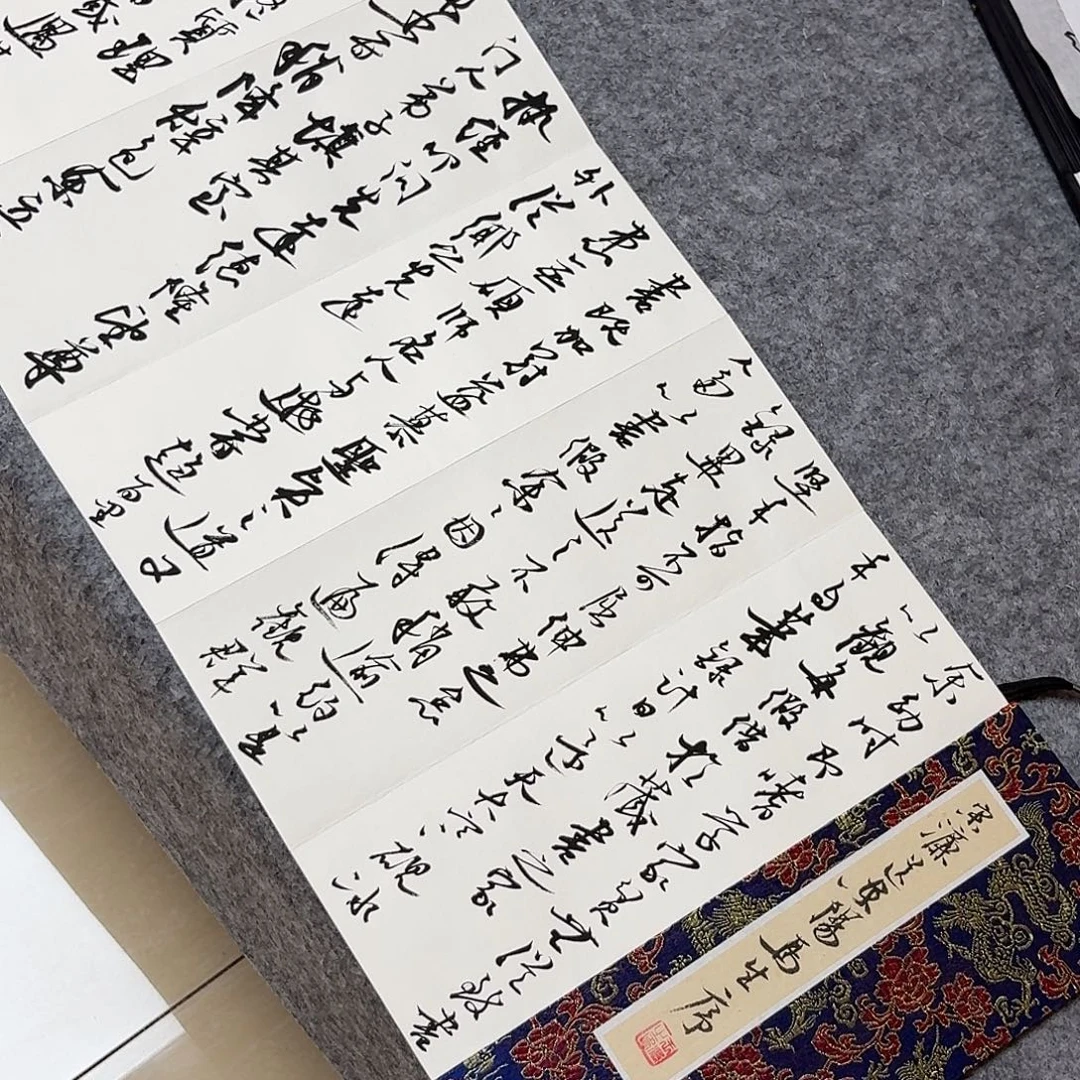 宋濂送東陽馬生序
余幼時即嗜學家貧無從致書
以觀每假借於藏書之家
手自筆錄計日以還天大寒硯冰
堅手指不可屈伸弗之怠
錄畢走送之不敢稍逾約以是
人多以書假余余因得遍觀群
書既加冠益慕聖賢之道又
患無碩師名人與遊嘗趨百里
外從鄉之先達
執經叩問先達德隆望尊
門人弟子填其室
未嘗稍降辭色余立
質理
或遇